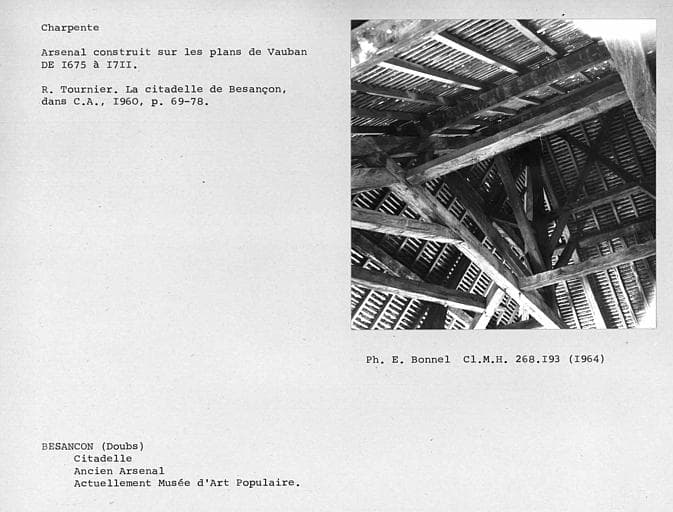 Charpente
Arsenal construit sur les plans de Vauban
DE I675 à I7II.
R. Tournier. La citadelle de Besançon,
dans C.A., I960, p. 69-78.
Ph. E. Bonnel Cl.M.H. 268.I93 (I964)
BESANCON (Doubs)
Citadelle
Ancien Arsenal
Actuellement Musée d'Art Populaire.